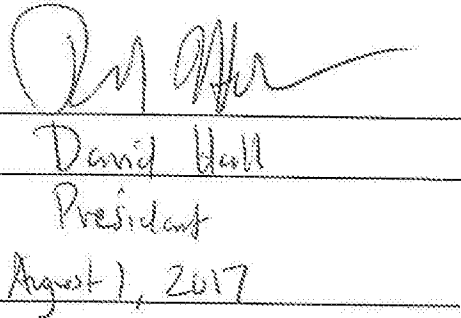 David Hall
President
August 1, 2017